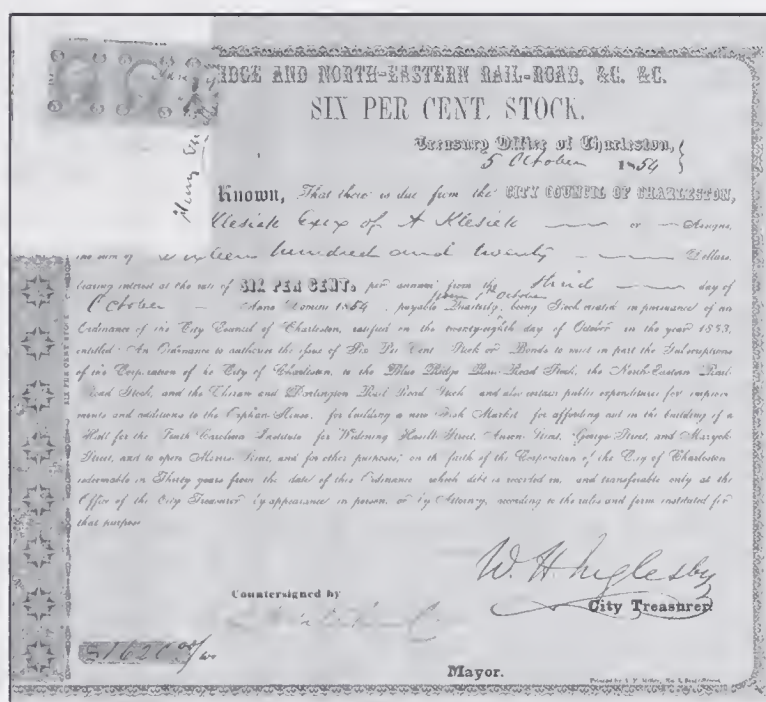 RIDGE AND NORTH-EASTERN RAIL-ROAD, &C. &C.
SIX PER CENT. STOCK.
Treasury Office of Charleston,
5 October 1854
Known, That there is due from the CITY COUNCIL OF CHARLESTON,
Klesick Exix of A Klesick or Assigns,
the sum of Sixteen hundred and twenty Dollars,
bearing interest at the rate of SIX PER CENT. per annum from the third day of
from 1st October
October Anno Domini 1854, payable Quarterly, being Stock created in pursuance of an
Ordinance of the City Council of Charleston, ratified on the twenty-eighth day of October in the year 1853,
entitled An Ordinance to authorize the issue of Six Per Cent Stock or Bonds to meet in part the Subscriptions
of the Corporation of the City of Charleston, to the Blue Ridge Rail Road Stock, the North-Eastern Rail
Road Stock, and the Cheraw and Darlington Rail Road Stock and also certain public expenditures for improve-
ments and additions to the Orphan House, for building a new Fish Market for affording aid in the building of a
Hall for the South Carolina Institute for Widening Hasell Street, Anson Street, George Street, and Mazyck
Street, and to open Street, and for other purposes; on the faith of the Corporation of the City of Charleston
redeemable in Thirty years from the date of this Ordinance which debt is recorded in, and transferable only at the
Office of the City Treasurer by appearance in person, or by Attorney, according to the rules and form instituted for
that purpose
W. H. Inglesby
Countersigned by
City Treasurer
$1620 00/100
Mayor.
SIX PER CENT STOCK